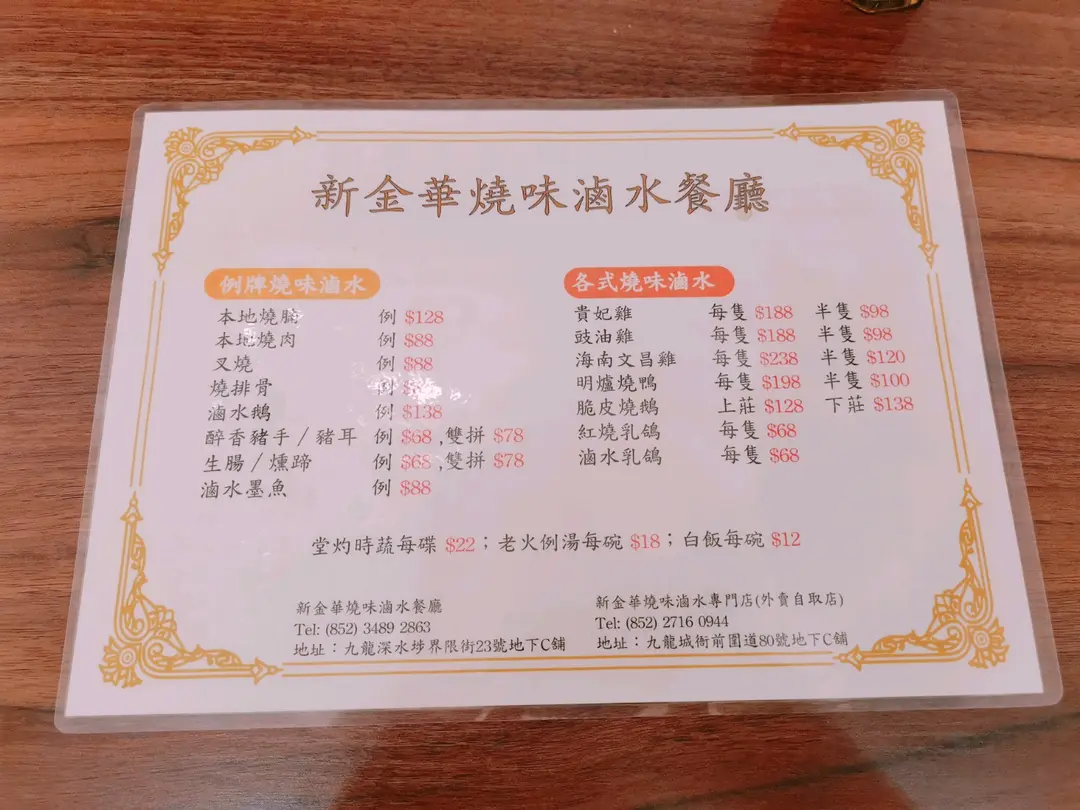 新金華燒味滷水餐廳
例牌燒味滷水
本地燒腩 例 $128
本地燒肉 例 $88
叉燒 例 $88
燒排骨 例
滷水鵝 例 $138
醉香豬手/豬耳 例 $68,雙拼 $78
生腸/燻蹄 例 $68,雙拼 $78
滷水墨魚 例 $88
各式燒味滷水
貴妃雞 每隻 $188 半隻 $98
豉油雞 每隻 $188 半隻 $98
海南文昌雞 每隻 $238 半隻 $120
明爐燒鴨 每隻 $198 半隻 $100
脆皮燒鵝 上莊 $128 下莊 $138
紅燒乳鴿 每隻 $68
滷水乳鴿 每隻 $68
堂灼時蔬每碟 $22;老火例湯每碗 $18;白飯每碗 $12
新金華燒味滷水餐廳
Tel: (852) 3489 2863
地址:九龍深水埗界限街23號地下C舖
新金華燒味滷水專門店(外賣自取店)
Tel: (852) 2716 0944
地址:九龍城衙前圍道80號地下C舖